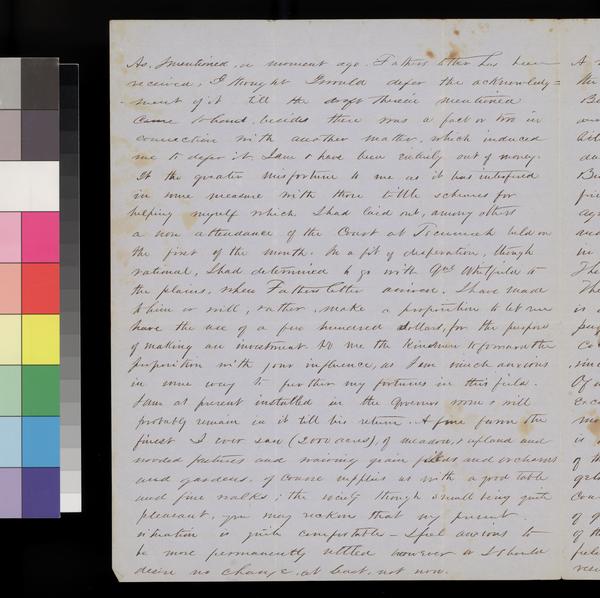 As I mentioned a moment ago. Fathers letter has been
received, I thought I would defer the acknowledg=
ment of it till the draft therein mentioned
Came to hand, besides there was a fact or two in
connection with another matter, which induced
me to defer it. I am & have been entirely out of money.
It the greater misfortune to me as it has interfered
in some measure with those little schemes for
helping myself which I had laid out, among others
a non attendance of the Court at Tecumseh held on
the first of the month. In a fit of desperation, though
rational, I had determined to go with Whitfield to
the plains, when Fathers letter arrived. I have made
to him or will, rather, make a proposition to let me
have the use of a few hundred dollars, for the purpose
of making an investment. Do me the kindness to forward the
proposition with your influence, as I am much anxious
in some way to further my fortunes in this field.
I am at present installed in the Governors room & will
probably remain in it till his return. A fine farm the
finest I ever saw (2000 acres), of meadow, & upland and
wooded pastures and waiving grain fields and orchards
and gardens. of course supplies us with a good table
and fine walks; the society though small being quite
pleasant, you may reckon that my present
situation is quite comfortable – I feel anxious to
be more permanently settled however or I should
desire no change, at least, not now.